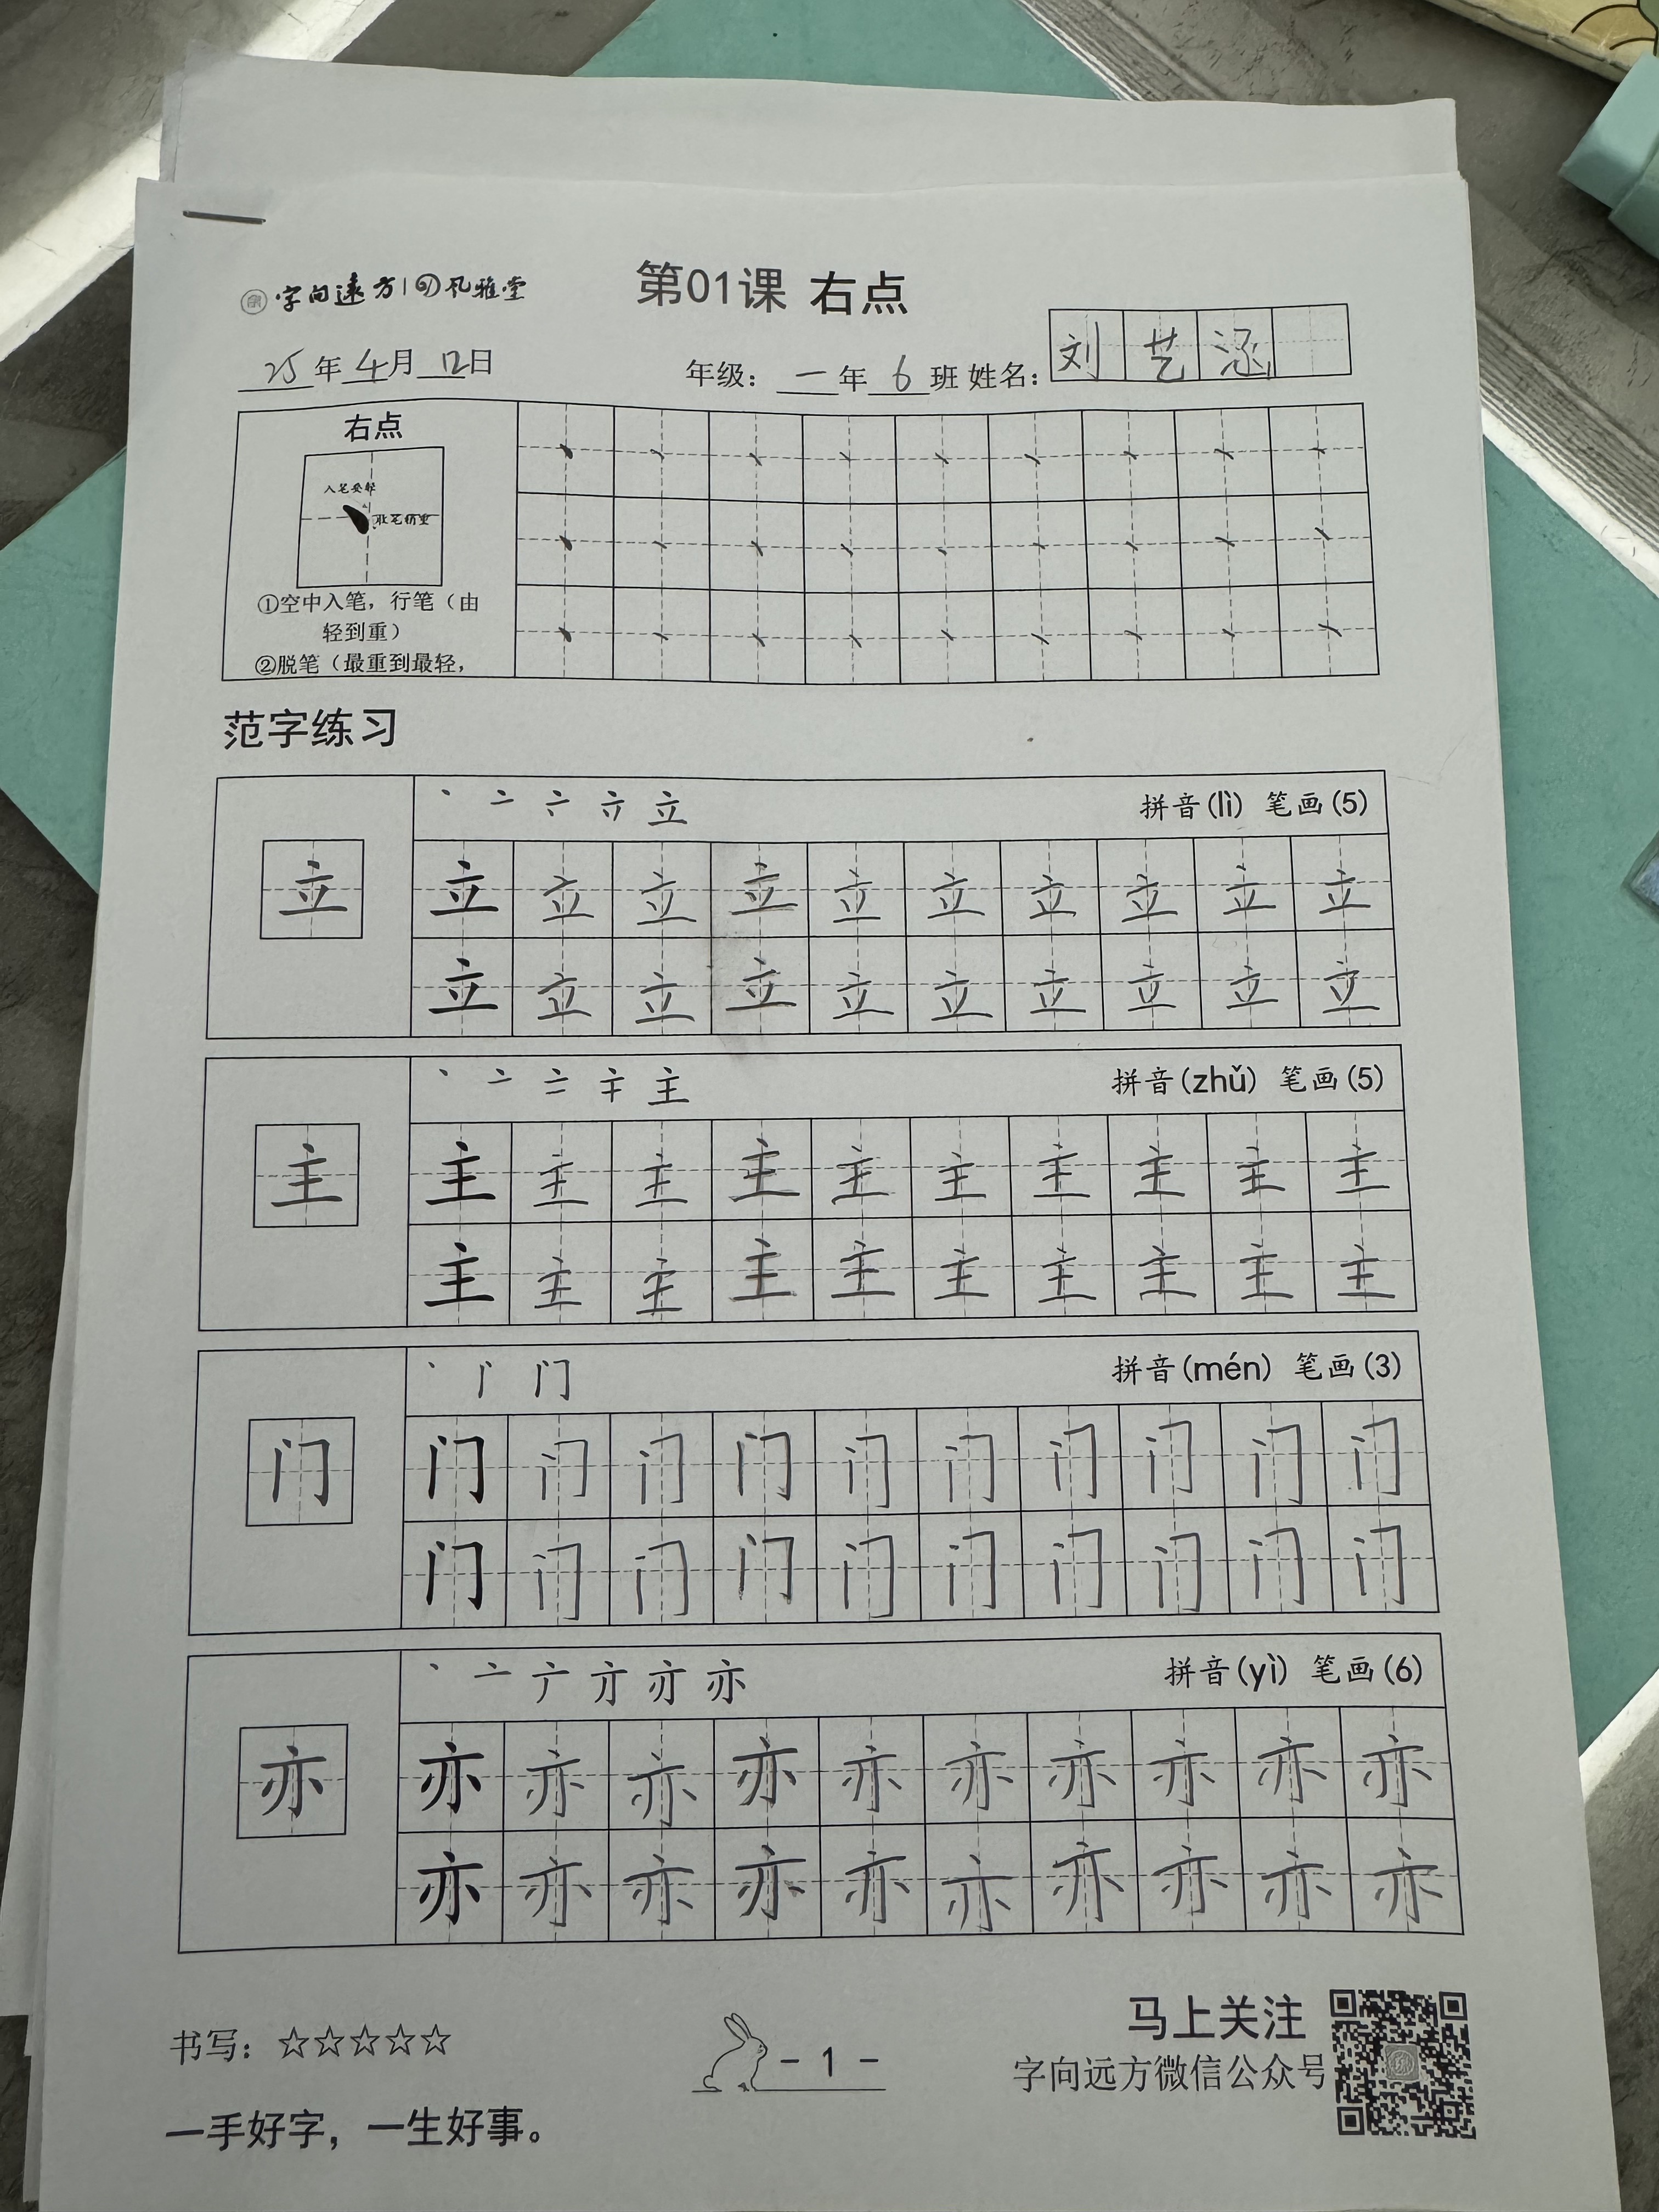 字向遠方 | 风雅堂
第01课 右点
25年4月12日 年级：一年6班 姓名：刘艺涵
右点
入笔要轻
收笔稍重
①空中入笔，行笔（由
轻到重）
②脱笔（最重到最轻，
范字练习
拼音(lì) 笔画(5)
立 立 立 立 立 立 立 立 立 立 立
立 立 立 立 立 立 立 立 立 立
拼音(zhǔ) 笔画(5)
主 主 主 主 主 主 主 主 主 主 主
主 主 主 主 主 主 主 主 主 主
拼音(mén) 笔画(3)
门 门 门 门 门 门 门 门 门 门 门
门 门 门 门 门 门 门 门 门 门
拼音(yì) 笔画(6)
亦 亦 亦 亦 亦 亦 亦 亦 亦 亦 亦
亦 亦 亦 亦 亦 亦 亦 亦 亦 亦
书写：☆☆☆☆☆
- 1 -
马上关注
字向远方微信公众号
一手好字，一生好事。